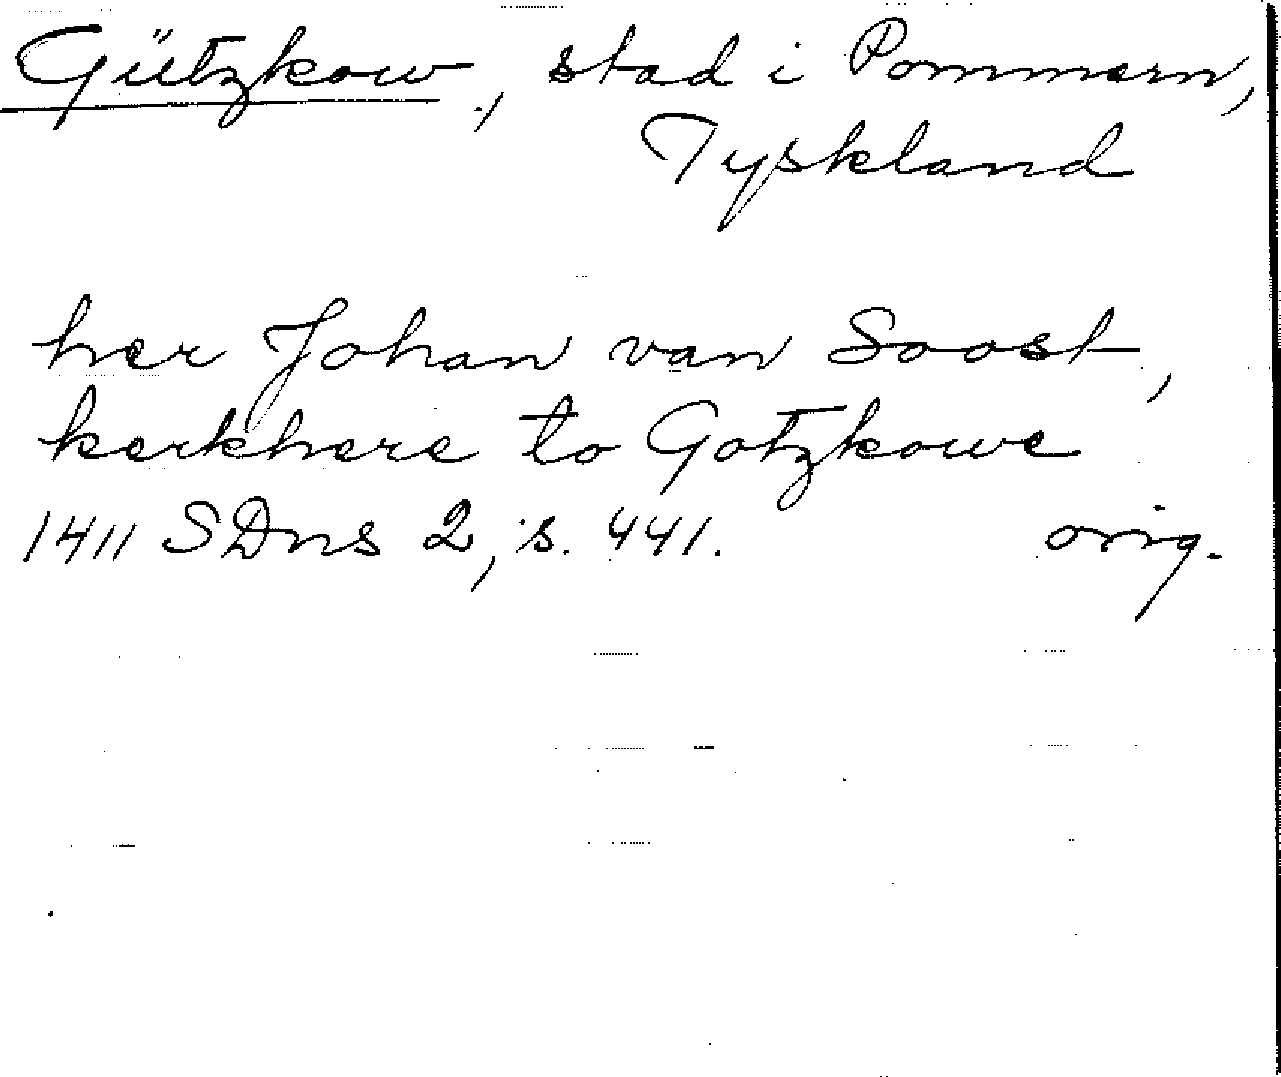 Gützkow, stad i Pommern,
Tyskland
her Johan van Soost,
kerkhere to Gotzkowe
1411 SDns 2, s. 441. orig.